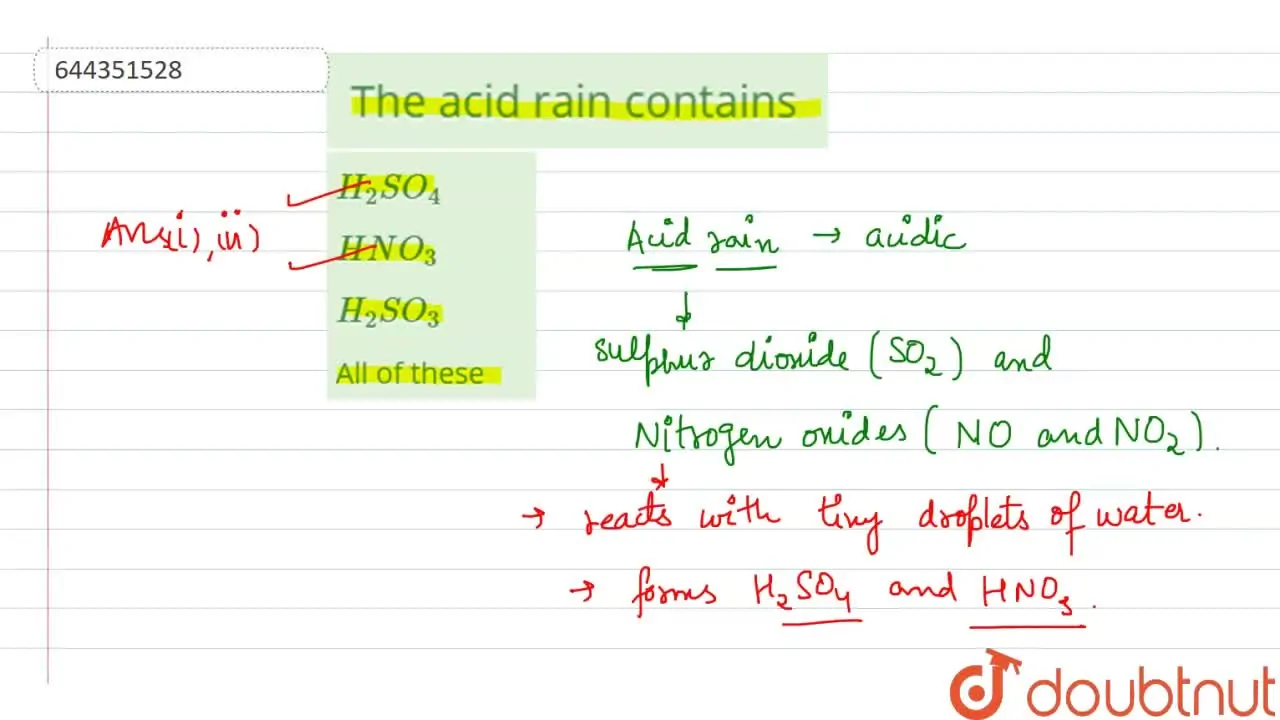 644351528
The acid rain contains
H₂SO₄
HNO₃
H₂SO₃
All of these
Ans(i), ii)
Acid rain → acidic
↓
sulphur dioxide (SO₂) and
Nitrogen oxides ( NO and NO₂).
↓
→ reacts with tiny droplets of water.
→ forms H₂SO₄ and HNO₃.
doubtnut